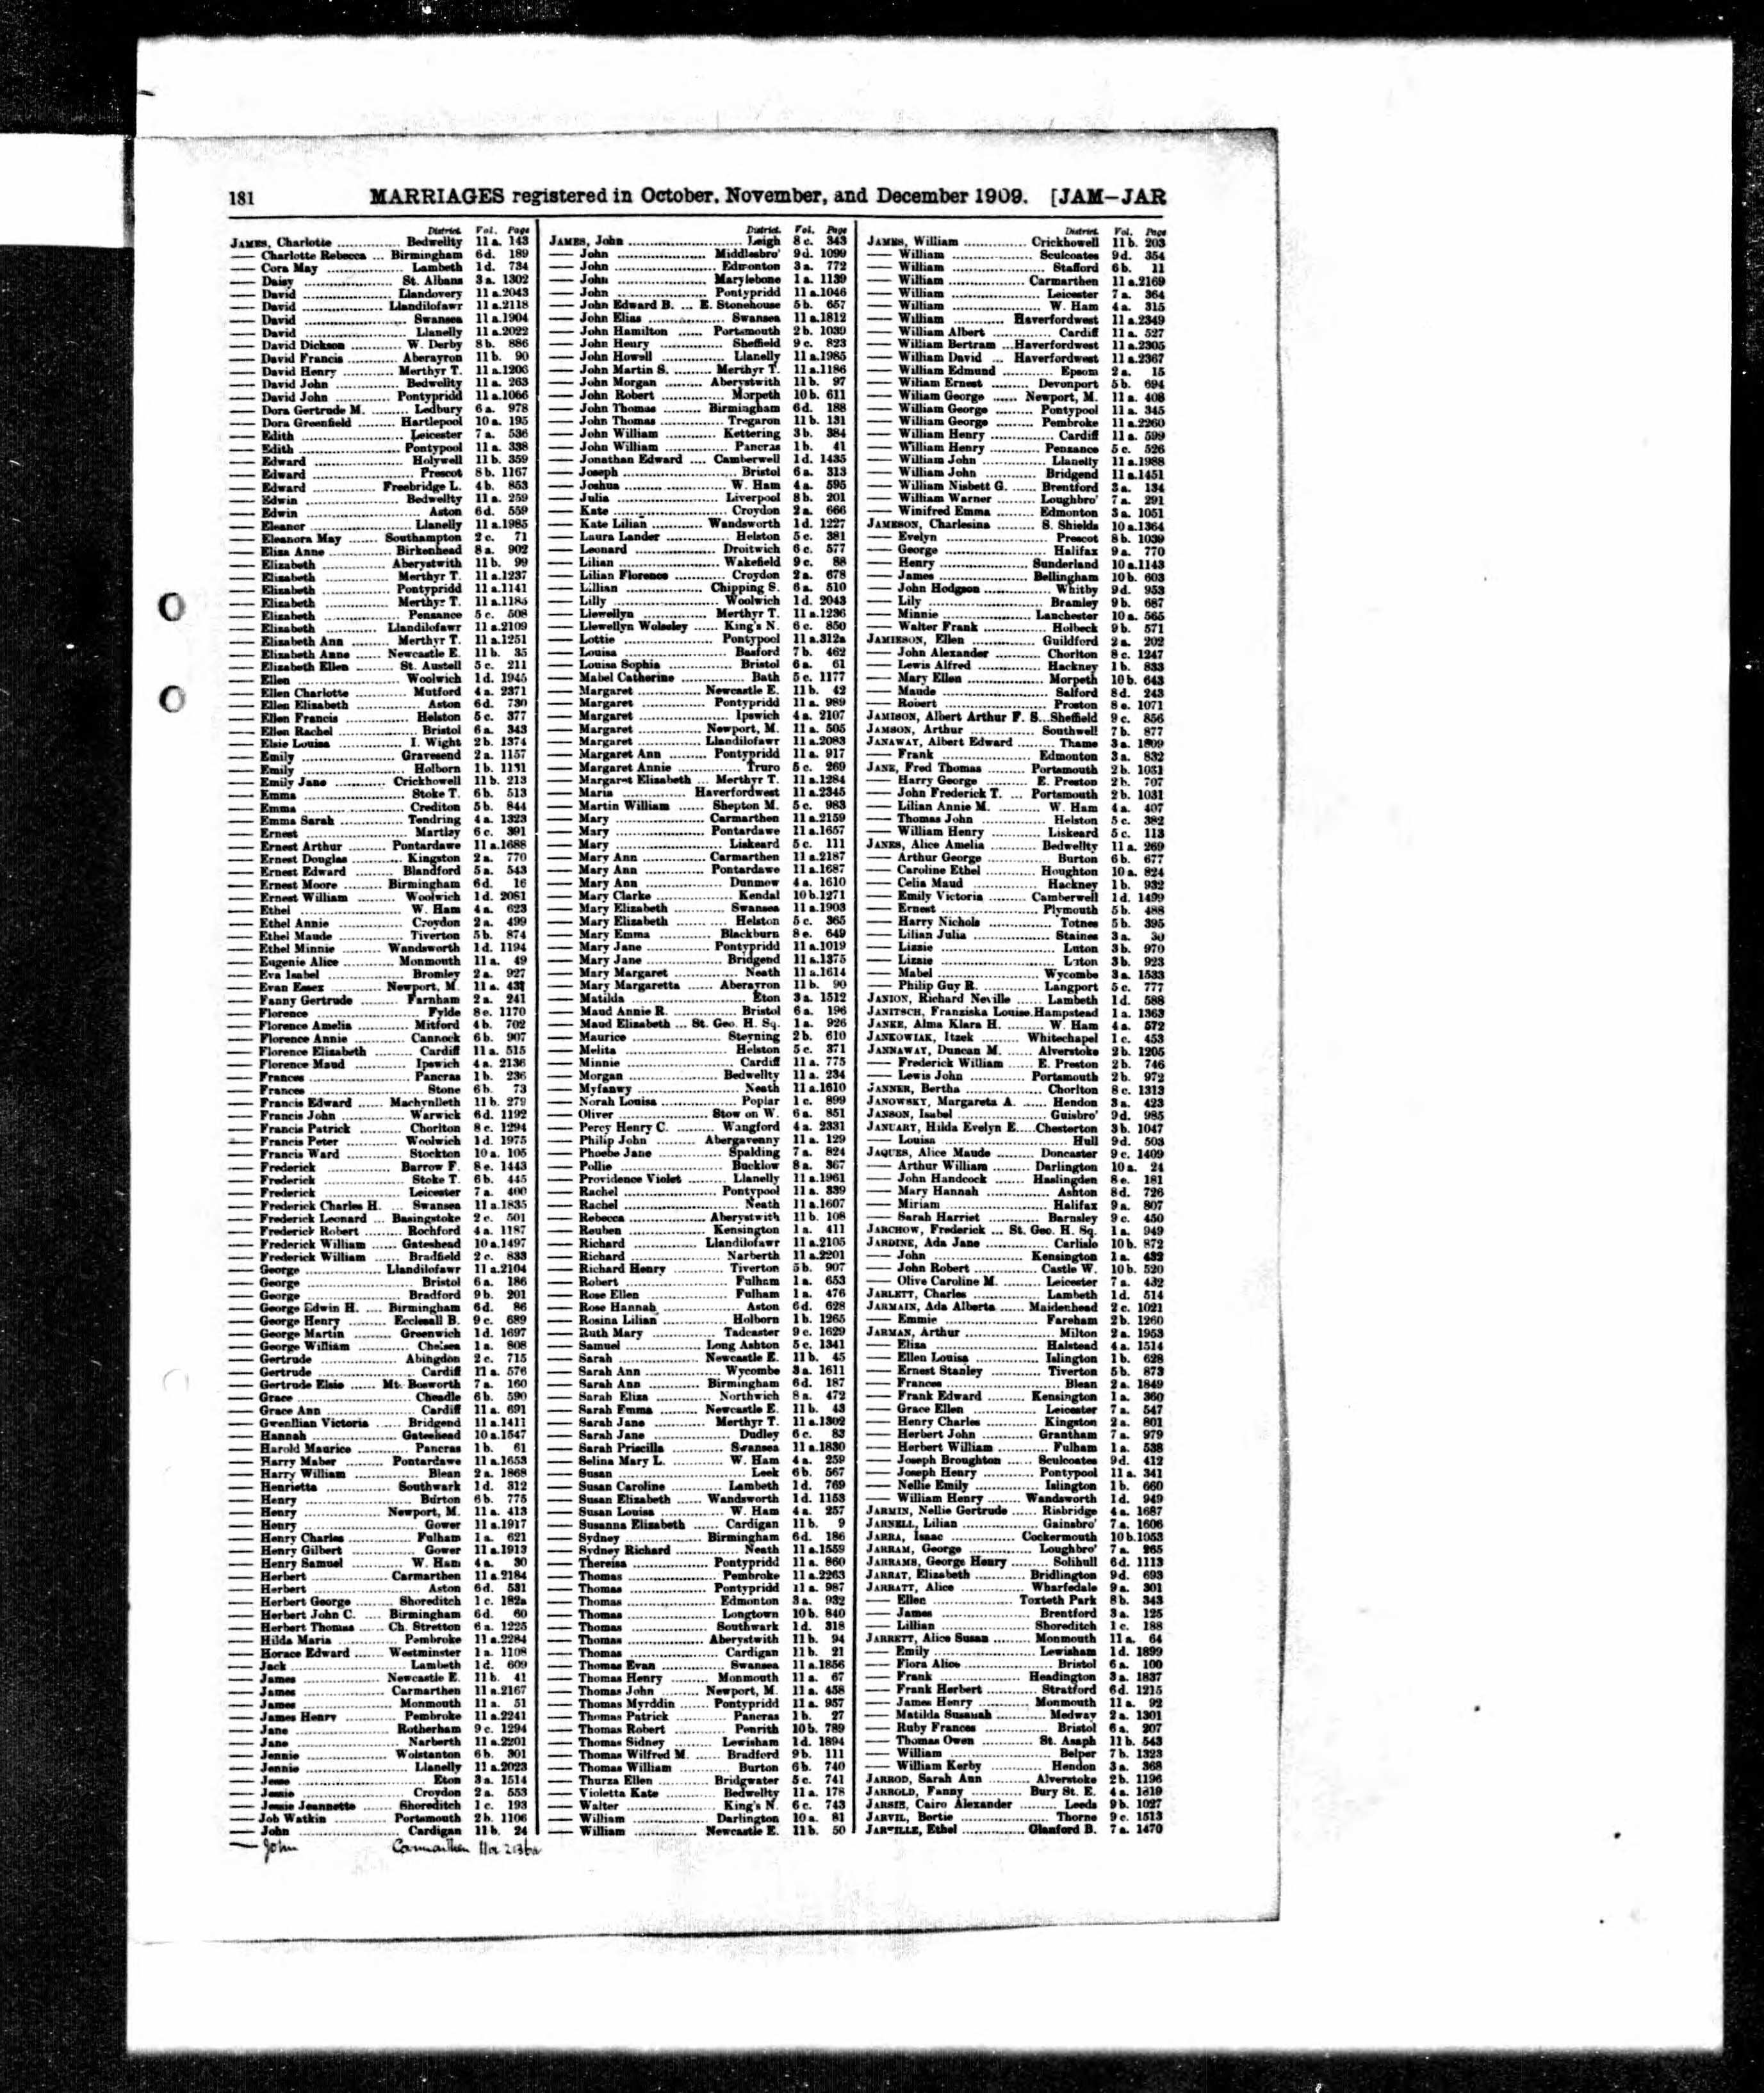 181 MARRIAGES registered in October, November, and December 1909. [JAM—JAR
District. Vol. Page
JAMES, Charlotte ............... Bedwellty 11 a. 143
—— Charlotte Rebecca ... Birmingham 6 d. 189
—— Cora May .................. Lambeth 1 d. 734
—— Daisy ..................... St. Albans 3 a. 1302
—— David ..................... Llandovery 11 a.2043
—— David .................. Llandilofawr 11 a.2118
—— David ........................ Swansea 11 a.1904
—— David ........................ Llanelly 11 a.2022
—— David Dickson ............ W. Derby 8 b. 886
—— David Francis ............ Aberayron 11 b. 90
—— David Henry ............ Merthyr T. 11 a.1206
—— David John ............... Bedwellty 11 a. 263
—— David John ............ Pontypridd 11 a.1066
—— Dora Gertrude M. ......... Ledbury 6 a. 978
—— Dora Greenfield ......... Hartlepool 10 a. 195
—— Edith ........................ Leicester 7 a. 536
—— Edith ........................ Pontypool 11 a. 338
—— Edward ..................... Holywell 11 b. 359
—— Edward ..................... Prescot 8 b. 1167
—— Edward ............... Freebridge L. 4 b. 853
—— Edwin ..................... Bedwellty 11 a. 259
—— Edwin ........................ Aston 6 d. 559
—— Eleanor ..................... Llanelly 11 a.1985
—— Eleanora May ...... Southampton 2 c. 71
—— Eliza Anne ............... Birkenhead 8 a. 902
—— Elizabeth .................. Aberystwith 11 b. 99
—— Elizabeth .................. Merthyr T. 11 a.1237
—— Elizabeth .................. Pontypridd 11 a.1141
—— Elizabeth .................. Merthyr T. 11 a.1185
—— Elizabeth .................. Penzance 5 c. 508
—— Elizabeth ............ Llandilofawr 11 a.2109
—— Elizabeth Ann ......... Merthyr T. 11 a.1251
—— Elizabeth Anne ...... Newcastle E. 11 b. 35
—— Elizabeth Ellen ......... St. Austell 5 c. 211
—— Ellen ........................ Woolwich 1 d. 1945
—— Ellen Charlotte ............ Mutford 4 a. 2371
—— Ellen Elizabeth ............... Aston 6 d. 730
—— Ellen Francis ............... Helston 5 c. 377
—— Ellen Rachel .................. Bristol 6 a. 343
—— Elsie Louisa ............... I. Wight 2 b. 1374
—— Emily ..................... Gravesend 2 a. 1157
—— Emily ........................ Holborn 1 b. 1131
—— Emily Jane ............ Crickhowell 11 b. 213
—— Emma ........................ Stoke T. 6 b. 513
—— Emma ........................ Crediton 5 b. 844
—— Emma Sarah ............... Tendring 4 a. 1323
—— Ernest ........................ Martley 6 c. 391
—— Ernest Arthur ......... Pontardawe 11 a.1688
—— Ernest Douglas ............ Kingston 2 a. 770
—— Ernest Edward ......... Blandford 5 a. 543
—— Ernest Moore ......... Birmingham 6 d. 16
—— Ernest William ......... Woolwich 1 d. 2081
—— Ethel ........................ W. Ham 4 a. 623
—— Ethel Annie .................. Croydon 2 a. 499
—— Ethel Maude ............... Tiverton 5 b. 874
—— Ethel Minnie ......... Wandsworth 1 d. 1194
—— Eugenie Alice ............ Monmouth 11 a. 49
—— Eva Isabel .................. Bromley 2 a. 927
—— Evan Essex ............ Newport, M. 11 a. 431
—— Fanny Gertrude ......... Farnham 2 a. 241
—— Florence ........................ Fylde 8 e. 1170
—— Florence Amelia ............ Mitford 4 b. 702
—— Florence Annie ............ Cannock 6 b. 907
—— Florence Elizabeth ......... Cardiff 11 a. 515
—— Florence Maud ............ Ipswich 4 a. 2136
—— Frances ..................... Pancras 1 b. 236
—— Frances ........................ Stone 6 b. 73
—— Francis Edward ...... Machynlleth 11 b. 279
—— Francis John ............... Warwick 6 d. 1192
—— Francis Patrick ......... Chorlton 8 c. 1294
—— Francis Peter ............ Woolwich 1 d. 1975
—— Francis Ward ............ Stockton 10 a. 105
—— Frederick ............... Barrow F. 8 e. 1443
—— Frederick .................. Stoke T. 6 b. 445
—— Frederick .................. Leicester 7 a. 400
—— Frederick Charles H. ... Swansea 11 a.1835
—— Frederick Leonard ... Basingstoke 2 c. 501
—— Frederick Robert ......... Rochford 4 a. 1187
—— Frederick William ...... Gateshead 10 a.1497
—— Frederick William ...... Bradfield 2 c. 833
—— George .................. Llandilofawr 11 a.2104
—— George ........................ Bristol 6 a. 186
—— George ..................... Bradford 9 b. 201
—— George Edwin H. .... Birmingham 6 d. 86
—— George Henry ......... Ecclesall B. 9 c. 689
—— George Martin ......... Greenwich 1 d. 1697
—— George William ............ Chelsea 1 a. 808
—— Gertrude .................. Abingdon 2 c. 715
—— Gertrude ..................... Cardiff 11 a. 576
—— Gertrude Elsie ...... Mt. Bosworth 7 a. 160
—— Grace ........................ Cheadle 6 b. 590
—— Grace Ann .................. Cardiff 11 a. 691
—— Gwenllian Victoria ...... Bridgend 11 a.1411
—— Hannah ..................... Gateshead 10 a.1547
—— Harold Maurice ............ Pancras 1 b. 61
—— Harry Maber ......... Pontardawe 11 a.1653
—— Harry William ............... Blean 2 a. 1868
—— Henrietta .................. Southwark 1 d. 312
—— Henry ........................ Burton 6 b. 775
—— Henry .................. Newport, M. 11 a. 413
—— Henry ........................ Gower 11 a.1917
—— Henry Charles ............... Fulham 1 a. 621
—— Henry Gilbert ............... Gower 11 a.1913
—— Henry Samuel ............ W. Ham 4 a. 30
—— Herbert .................. Carmarthen 11 a.2184
—— Herbert ........................ Aston 6 d. 531
—— Herbert George ......... Shoreditch 1 c. 182a
—— Herbert John C. .... Birmingham 6 d. 60
—— Herbert Thomas ...... Ch. Stretton 6 a. 1225
—— Hilda Maria ............... Pembroke 11 a.2284
—— Horace Edward ...... Westminster 1 a. 1108
—— Jack ........................ Lambeth 1 d. 609
—— James .................. Newcastle E. 11 b. 41
—— James .................. Carmarthen 11 a.2167
—— James ..................... Monmouth 11 a. 51
—— James Henry ............ Pembroke 11 a.2241
—— Jane ........................ Rotherham 9 c. 1294
—— Jane ........................ Narberth 11 a.2201
—— Jennie ..................... Wolstanton 6 b. 301
—— Jennie ..................... Llanelly 11 a.2023
—— Jesse ........................ Eton 3 a. 1514
—— Jessie ........................ Croydon 2 a. 553
—— Jessie Jeannette ......... Shoreditch 1 c. 193
—— Job Watkin ............ Portsmouth 2 b. 1106
—— John ........................ Cardigan 11 b. 24
— John Carmarthen 11a 2136a
District. Vol. Page
JAMES, John ........................... Leigh 8 c. 343
—— John ..................... Middlesbro' 9 d. 1099
—— John ........................ Edmonton 3 a. 772
—— John ........................ Marylebone 1 a. 1139
—— John ..................... Pontypridd 11 a.1046
—— John Edward B. ... E. Stonehouse 5 b. 657
—— John Elias .................. Swansea 11 a.1812
—— John Hamilton ...... Portsmouth 2 b. 1039
—— John Henry ............... Sheffield 9 c. 823
—— John Howell ............... Llanelly 11 a.1985
—— John Martin S. ......... Merthyr T. 11 a.1186
—— John Morgan ......... Aberystwith 11 b. 97
—— John Robert ............... Morpeth 10 b. 611
—— John Thomas ......... Birmingham 6 d. 188
—— John Thomas ............ Tregaron 11 b. 131
—— John William ............ Kettering 3 b. 384
—— John William ............ Pancras 1 b. 41
—— Jonathan Edward .... Camberwell 1 d. 1435
—— Joseph ........................ Bristol 6 a. 313
—— Joshua ........................ W. Ham 4 a. 595
—— Julia ........................ Liverpool 8 b. 201
—— Kate ........................ Croydon 2 a. 666
—— Kate Lilian ............ Wandsworth 1 d. 1227
—— Laura Lander ............... Helston 5 c. 381
—— Leonard ..................... Droitwich 6 c. 577
—— Lilian ........................ Wakefield 9 c. 88
—— Lilian Florence ............ Croydon 2 a. 678
—— Lillian .................. Chipping S. 6 a. 510
—— Lilly ........................ Woolwich 1 d. 2043
—— Llewellyn .................. Merthyr T. 11 a.1236
—— Llewellyn Wolseley ...... King's N. 6 c. 850
—— Lottie ..................... Pontypool 11 a.312a
—— Louisa ........................ Basford 7 b. 462
—— Louisa Sophia ............... Bristol 6 a. 61
—— Mabel Catherine ............... Bath 5 c. 1177
—— Margaret ............... Newcastle E. 11 b. 42
—— Margaret .................. Pontypridd 11 a. 989
—— Margaret ..................... Ipswich 4 a. 2107
—— Margaret ............... Newport, M. 11 a. 505
—— Margaret ............... Llandilofawr 11 a.2083
—— Margaret Ann ......... Pontypridd 11 a. 917
—— Margaret Annie ............... Truro 5 c. 269
—— Margaret Elizabeth ... Merthyr T. 11 a.1284
—— Maria ............... Haverfordwest 11 a.2345
—— Martin William ...... Shepton M. 5 c. 983
—— Mary ..................... Carmarthen 11 a.2159
—— Mary ..................... Pontardawe 11 a.1657
—— Mary ........................ Liskeard 5 c. 111
—— Mary Ann ............... Carmarthen 11 a.2187
—— Mary Ann ............... Pontardawe 11 a.1687
—— Mary Ann .................. Dunmow 4 a. 1610
—— Mary Clarke .................. Kendal 10 b.1271
—— Mary Elizabeth ............ Swansea 11 a.1903
—— Mary Elizabeth ............ Helston 5 c. 365
—— Mary Emma ............... Blackburn 8 e. 649
—— Mary Jane ............... Pontypridd 11 a.1019
—— Mary Jane .................. Bridgend 11 a.1375
—— Mary Margaret ............... Neath 11 a.1614
—— Mary Margaretta ...... Aberayron 11 b. 90
—— Matilda ........................ Eton 3 a. 1512
—— Maud Annie R. ............... Bristol 6 a. 196
—— Maud Elizabeth ... St. Geo. H. Sq. 1 a. 926
—— Maurice ..................... Steyning 2 b. 610
—— Melita ........................ Helston 5 c. 371
—— Minnie ........................ Cardiff 11 a. 775
—— Morgan ..................... Bedwellty 11 a. 234
—— Myfanwy ..................... Neath 11 a.1610
—— Norah Louisa ............... Poplar 1 c. 899
—— Oliver ..................... Stow on W. 6 a. 851
—— Percy Henry C. ......... Wangford 4 a. 2331
—— Philip John ......... Abergavenny 11 a. 129
—— Phoebe Jane ............... Spalding 7 a. 824
—— Pollie ........................ Bucklow 8 a. 367
—— Providence Violet ......... Llanelly 11 a.1961
—— Rachel ..................... Pontypool 11 a. 339
—— Rachel ........................ Neath 11 a.1607
—— Rebecca ............... Aberystwith 11 b. 108
—— Reuben ..................... Kensington 1 a. 411
—— Richard .................. Llandilofawr 11 a.2105
—— Richard ..................... Narberth 11 a.2201
—— Richard Henry ............ Tiverton 5 b. 907
—— Robert ........................ Fulham 1 a. 653
—— Rose Ellen .................. Fulham 1 a. 476
—— Rose Hannah .................. Aston 6 d. 628
—— Rosina Lilian ............... Holborn 1 b. 1265
—— Ruth Mary ............... Tadcaster 9 c. 1629
—— Samuel .................. Long Ashton 5 c. 1341
—— Sarah ..................... Newcastle E. 11 b. 45
—— Sarah Ann .................. Wycombe 3 a. 1611
—— Sarah Ann ............ Birmingham 6 d. 187
—— Sarah Eliza ............... Northwich 8 a. 472
—— Sarah Emma ......... Newcastle E. 11 b. 43
—— Sarah Jane ............ Merthyr T. 11 a.1302
—— Sarah Jane .................. Dudley 6 c. 83
—— Sarah Priscilla ............ Swansea 11 a.1830
—— Selina Mary L. ............ W. Ham 4 a. 259
—— Susan ........................ Leek 6 b. 567
—— Susan Caroline ............ Lambeth 1 d. 769
—— Susan Elizabeth ...... Wandsworth 1 d. 1153
—— Susan Louisa ............... W. Ham 4 a. 257
—— Susanna Elizabeth ...... Cardigan 11 b. 9
—— Sydney .................. Birmingham 6 d. 186
—— Sydney Richard ............... Neath 11 a.1559
—— Thereisa .................. Pontypridd 11 a. 860
—— Thomas ..................... Pembroke 11 a.2263
—— Thomas .................. Pontypridd 11 a. 987
—— Thomas ..................... Edmonton 3 a. 932
—— Thomas ..................... Longtown 10 b. 840
—— Thomas ..................... Southwark 1 d. 318
—— Thomas .................. Aberystwith 11 b. 94
—— Thomas ..................... Cardigan 11 b. 21
—— Thomas Evan ............... Swansea 11 a.1856
—— Thomas Henry ......... Monmouth 11 a. 67
—— Thomas John ......... Newport, M. 11 a. 458
—— Thomas Myrddin ...... Pontypridd 11 a. 957
—— Thomas Patrick ............ Pancras 1 b. 27
—— Thomas Robert ............ Penrith 10 b. 789
—— Thomas Sidney ............ Lewisham 1 d. 1894
—— Thomas Wilfred M. ...... Bradford 9 b. 111
—— Thomas William ............ Burton 6 b. 740
—— Thurza Ellen ............ Bridgwater 5 c. 741
—— Violetta Kate ............ Bedwellty 11 a. 178
—— Walter ..................... King's N. 6 c. 743
—— William ..................... Darlington 10 a. 81
—— William .................. Newcastle E. 11 b. 50
District. Vol. Page
JAMES, William ............... Crickhowell 11 b. 203
—— William ..................... Sculcoates 9 d. 354
—— William ..................... Stafford 6 b. 11
—— William .................. Carmarthen 11 a.2169
—— William ..................... Leicester 7 a. 364
—— William ..................... W. Ham 4 a. 315
—— William ............ Haverfordwest 11 a.2349
—— William Albert ............ Cardiff 11 a. 527
—— William Bertram ...Haverfordwest 11 a.2305
—— William David ... Haverfordwest 11 a.2367
—— William Edmund ............ Epsom 2 a. 15
—— Wiliam Ernest ......... Devonport 5 b. 694
—— Wiliam George ...... Newport, M. 11 a. 408
—— William George ......... Pontypool 11 a. 345
—— William George ......... Pembroke 11 a.2260
—— William Henry ............... Cardiff 11 a. 599
—— William Henry ............ Penzance 5 c. 526
—— William John ............... Llanelly 11 a.1988
—— William John ............... Bridgend 11 a.1451
—— William Nisbett G. ...... Brentford 3 a. 134
—— William Warner ......... Loughbro' 7 a. 291
—— Winifred Emma ......... Edmonton 3 a. 1051
JAMESON, Charlesina ......... S. Shields 10 a.1364
—— Evelyn ........................ Prescot 8 b. 1039
—— George ........................ Halifax 9 a. 770
—— Henry ..................... Sunderland 10 a.1143
—— James ..................... Bellingham 10 b. 603
—— John Hodgson ............... Whitby 9 d. 953
—— Lily ........................ Bramley 9 b. 687
—— Minnie ..................... Lanchester 10 a. 565
—— Walter Frank ............... Holbeck 9 b. 571
JAMIESON, Ellen ............... Guildford 2 a. 202
—— John Alexander ............ Chorlton 8 c. 1247
—— Lewis Alfred ............... Hackney 1 b. 833
—— Mary Ellen .................. Morpeth 10 b. 643
—— Maude ........................ Salford 8 d. 243
—— Robert ........................ Preston 8 e. 1071
JAMISON, Albert Arthur F. S...Sheffield 9 c. 856
JAMSON, Arthur ............... Southwell 7 b. 877
JANAWAY, Albert Edward ......... Thame 3 a. 1809
—— Frank ..................... Edmonton 3 a. 832
JANE, Fred Thomas ......... Portsmouth 2 b. 1031
—— Harry George ......... E. Preston 2 b. 707
—— John Frederick T. ... Portsmouth 2 b. 1031
—— Lilian Annie M. ............ W. Ham 4 a. 407
—— Thomas John ............... Helston 5 c. 382
—— William Henry ............ Liskeard 5 c. 113
JANES, Alice Amelia ............ Bedwellty 11 a. 269
—— Arthur George ............... Burton 6 b. 677
—— Caroline Ethel ............ Houghton 10 a. 824
—— Celia Maud .................. Hackney 1 b. 932
—— Emily Victoria ......... Camberwell 1 d. 1499
—— Ernest ..................... Plymouth 5 b. 488
—— Harry Nichols ............... Totnes 5 b. 395
—— Lilian Julia .................. Staines 3 a. 30
—— Lizzie ........................ Luton 3 b. 970
—— Lizzie ........................ Luton 3 b. 923
—— Mabel ........................ Wycombe 3 a. 1533
—— Philip Guy R. ............ Langport 5 c. 777
JANION, Richard Neville ...... Lambeth 1 d. 588
JANITSCH, Franziska Louise.Hampstead 1 a. 1363
JANKE, Alma Klara H. ......... W. Ham 4 a. 572
JANKOWIAK, Itzek ......... Whitechapel 1 c. 453
JANNAWAY, Duncan M. ...... Alverstoke 2 b. 1205
—— Frederick William ...... E. Preston 2 b. 746
—— Lewis John ............ Portsmouth 2 b. 972
JANNER, Bertha .................. Chorlton 8 c. 1313
JANOWSKY, Margareta A. ...... Hendon 3 a. 423
JANSON, Isabel .................. Guisbro' 9 d. 985
JANUARY, Hilda Evelyn E.....Chesterton 3 b. 1047
—— Louisa ........................ Hull 9 d. 503
JAQUES, Alice Maude ......... Doncaster 9 c. 1409
—— Arthur William ......... Darlington 10 a. 24
—— John Handcock ...... Haslingden 8 e. 181
—— Mary Hannah ............... Ashton 8 d. 726
—— Miriam ........................ Halifax 9 a. 807
—— Sarah Harriet ............ Barnsley 9 c. 450
JARCHOW, Frederick ... St. Geo. H. Sq. 1 a. 949
JARDINE, Ada Jane ............... Carlisle 10 b. 872
—— John ..................... Kensington 1 a. 432
—— John Robert ............ Castle W. 10 b. 520
—— Olive Caroline M. ......... Leicester 7 a. 432
JARLETT, Charles ............... Lambeth 1 d. 514
JARMAIN, Ada Alberta ...... Maidenhead 2 c. 1021
—— Emmie ........................ Fareham 2 b. 1260
JARMAN, Arthur .................. Milton 2 a. 1953
—— Eliza ........................ Halstead 4 a. 1514
—— Ellen Louisa ............... Islington 1 b. 628
—— Ernest Stanley ............ Tiverton 5 b. 873
—— Frances ........................ Blean 2 a. 1849
—— Frank Edward ......... Kensington 1 a. 360
—— Grace Ellen ............... Leicester 7 a. 547
—— Henry Charles ............ Kingston 2 a. 801
—— Herbert John ............ Grantham 7 a. 979
—— Herbert William ............ Fulham 1 a. 538
—— Joseph Broughton ...... Sculcoates 9 d. 412
—— Joseph Henry ............ Pontypool 11 a. 341
—— Nellie Emily ............... Islington 1 b. 660
—— William Henry ........ Wandsworth 1 d. 949
JARMIN, Nellie Gertrude ...... Risbridge 4 a. 1687
JARNELL, Lilian .................. Gainsbro' 7 a. 1606
JARRA, Isaac .................. Cockermouth 10 b.1053
JARRAM, George ............... Loughbro' 7 a. 265
JARRAMS, George Henry ......... Solihull 6 d. 1113
JARRAT, Elizabeth ............ Bridlington 9 d. 693
JARRATT, Alice ............... Wharfedale 9 a. 301
—— Ellen .................. Toxteth Park 8 b. 343
—— James ..................... Brentford 3 a. 125
—— Lillian ..................... Shoreditch 1 c. 188
JARRETT, Alice Susan ......... Monmouth 11 a. 64
—— Emily ........................ Lewisham 1 d. 1899
—— Flora Alice .................. Bristol 6 a. 100
—— Frank ..................... Headington 3 a. 1837
—— Frank Herbert ............ Stratford 6 d. 1215
—— James Henry ............ Monmouth 11 a. 92
—— Matilda Susanah ............ Medway 2 a. 1301
—— Ruby Frances ............... Bristol 6 a. 207
—— Thomas Owen ............ St. Asaph 11 b. 543
—— William ........................ Belper 7 b. 1323
—— William Kerby ............ Hendon 3 a. 368
JARROD, Sarah Ann ......... Alverstoke 2 b. 1196
JARROLD, Fanny ............ Bury St. E. 4 a. 1819
JARSIE, Cairo Alexander ......... Leeds 9 b. 1027
JARVIL, Bertie .................. Thorne 9 c. 1513
JARVILLE, Ethel ............... Glanford B. 7 a. 1470